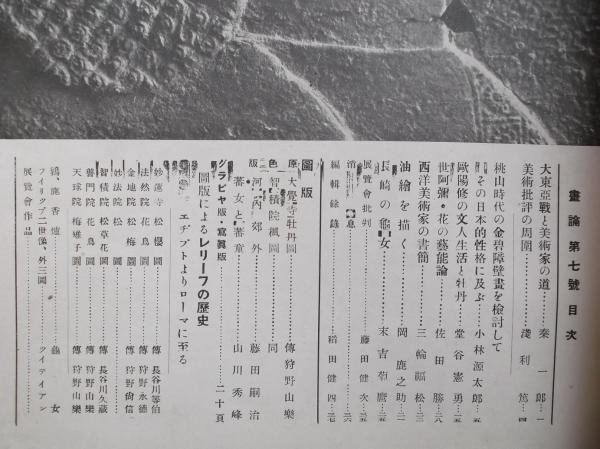 畫論 第七號 目次
大東亞戰と美術家の道………秦一郎…一
美術批評の周圍………淺利篤…四
桃山時代の金碧障壁畫を檢討して
その日本的性格に及ぶ…小林源太郎…五
歐陽修の文人生活と牡丹…堂谷憲勇…
世阿彌・花の藝能論………佐田勝…
西洋美術家の書簡………三輪福松…
油繪を描く………岡鹿之助…
長崎の龜女………末吉
展覽會批判………藤田健次…
消息………
編輯後錄………稻田健四…
圖版
原色版
大覺寺牡丹圖………傳狩野山樂
智積院楓圖………同
河內郊外………藤田嗣治
蕃女と蕃童………山川秀峰
グラビヤ版・寫眞版
圖版によるレリーフの歷史………二十頁
エヂプトよりローマに至る
妙蓮寺松櫻圖………傳長谷川等伯
法然院花鳥圖………傳狩野永德
金地院松梅圖………傳狩野尙信
妙法院松圖………
智積院松草花圖………傳長谷川久藏
普門院花鳥圖………傳狩野山樂
天球院梅雉子圖………傳狩野山樂
鶉鹿香爐………龜女
フイリツプ二世像、外三圖………ツイテイアン
展覽會作品